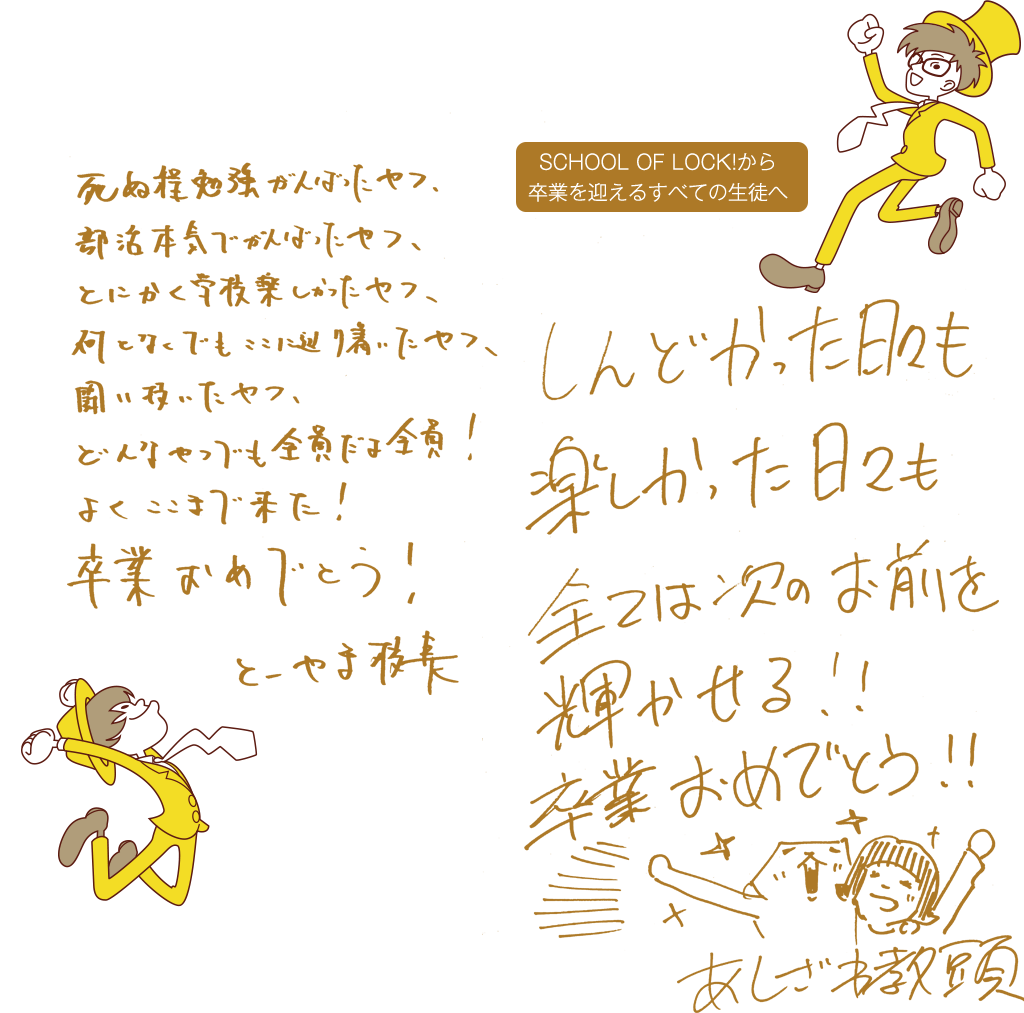 SCHOOL OF LOCK!から
卒業を迎えるすべての生徒へ
死ぬ程勉強がんばったヤツ、
部活本気でがんばったヤツ、
とにかく学校楽しかったヤツ、
何となくでもここに辿り着いたヤツ、
闘い抜いたヤツ、
どんなやつでも全員だよ全員！
よくここまで来た！
卒業おめでとう！
とーやま校長
しんどかった日々も
楽しかった日々も
全ては次のお前を
輝かせる！！
卒業おめでとう！！
あしざわ教頭